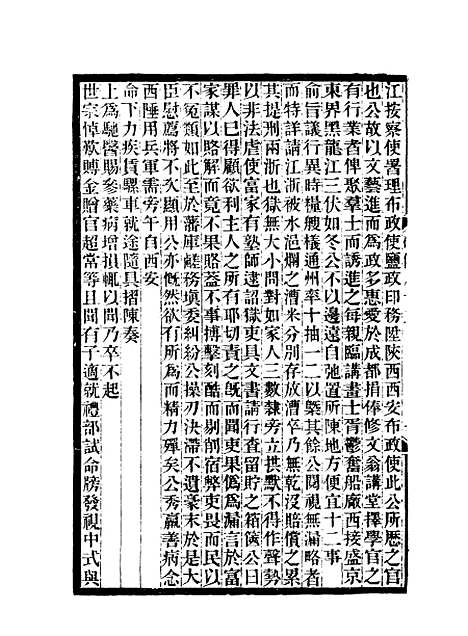 江按察使署理布政使鹽政印務陞陝西西安布政使此公所歷之官
也公故以文藝進而為政多惠愛於成都捐俸修文翁講堂擇學官之
有行業者俾聚羣士而誘進之每親臨講畫士胥鬱奮船廠西接盛京
東界黑龍江三伏如冬公不以邊遠自弛置所陳地方便宜十二事
俞旨議行異時糧艘㨾通州率十抽一二以槩其餘公閱視無漏略者
而特詳請江浙被水浥爛之漕米分別存漕卒乃無乾沒賠償之累
其提刑兩浙也獄無大小問對如家人三數隸旁立拱默不得作聲勢
以非法虐使富家有塾師逮詔獄吏具文書請行查留貯之箱篋公曰
罪人已得顧欲利主人之所有耶切責之旣而聞吏果僞為漏言於富
家謀以賂解而竟不果賂蓋不事搏擊刻酷而剔師宿弊吏畏而民以
不冤類如此至於藩庫鹺務填委糾紛公操刀決滯不遺豪末於是大
臣慰薦將不次顯用公亦慨然欲有所為而精力殫矣公秀羸善病念
西陲用兵軍需旁午自西安
命下力疾賃騾車就途隨具摺陳奏
上為馳醫賜參藥病增損輒以聞乃卒不起
世宗悼歎賻金贈官超常等且問有子適就禮部試命牓發視中式與